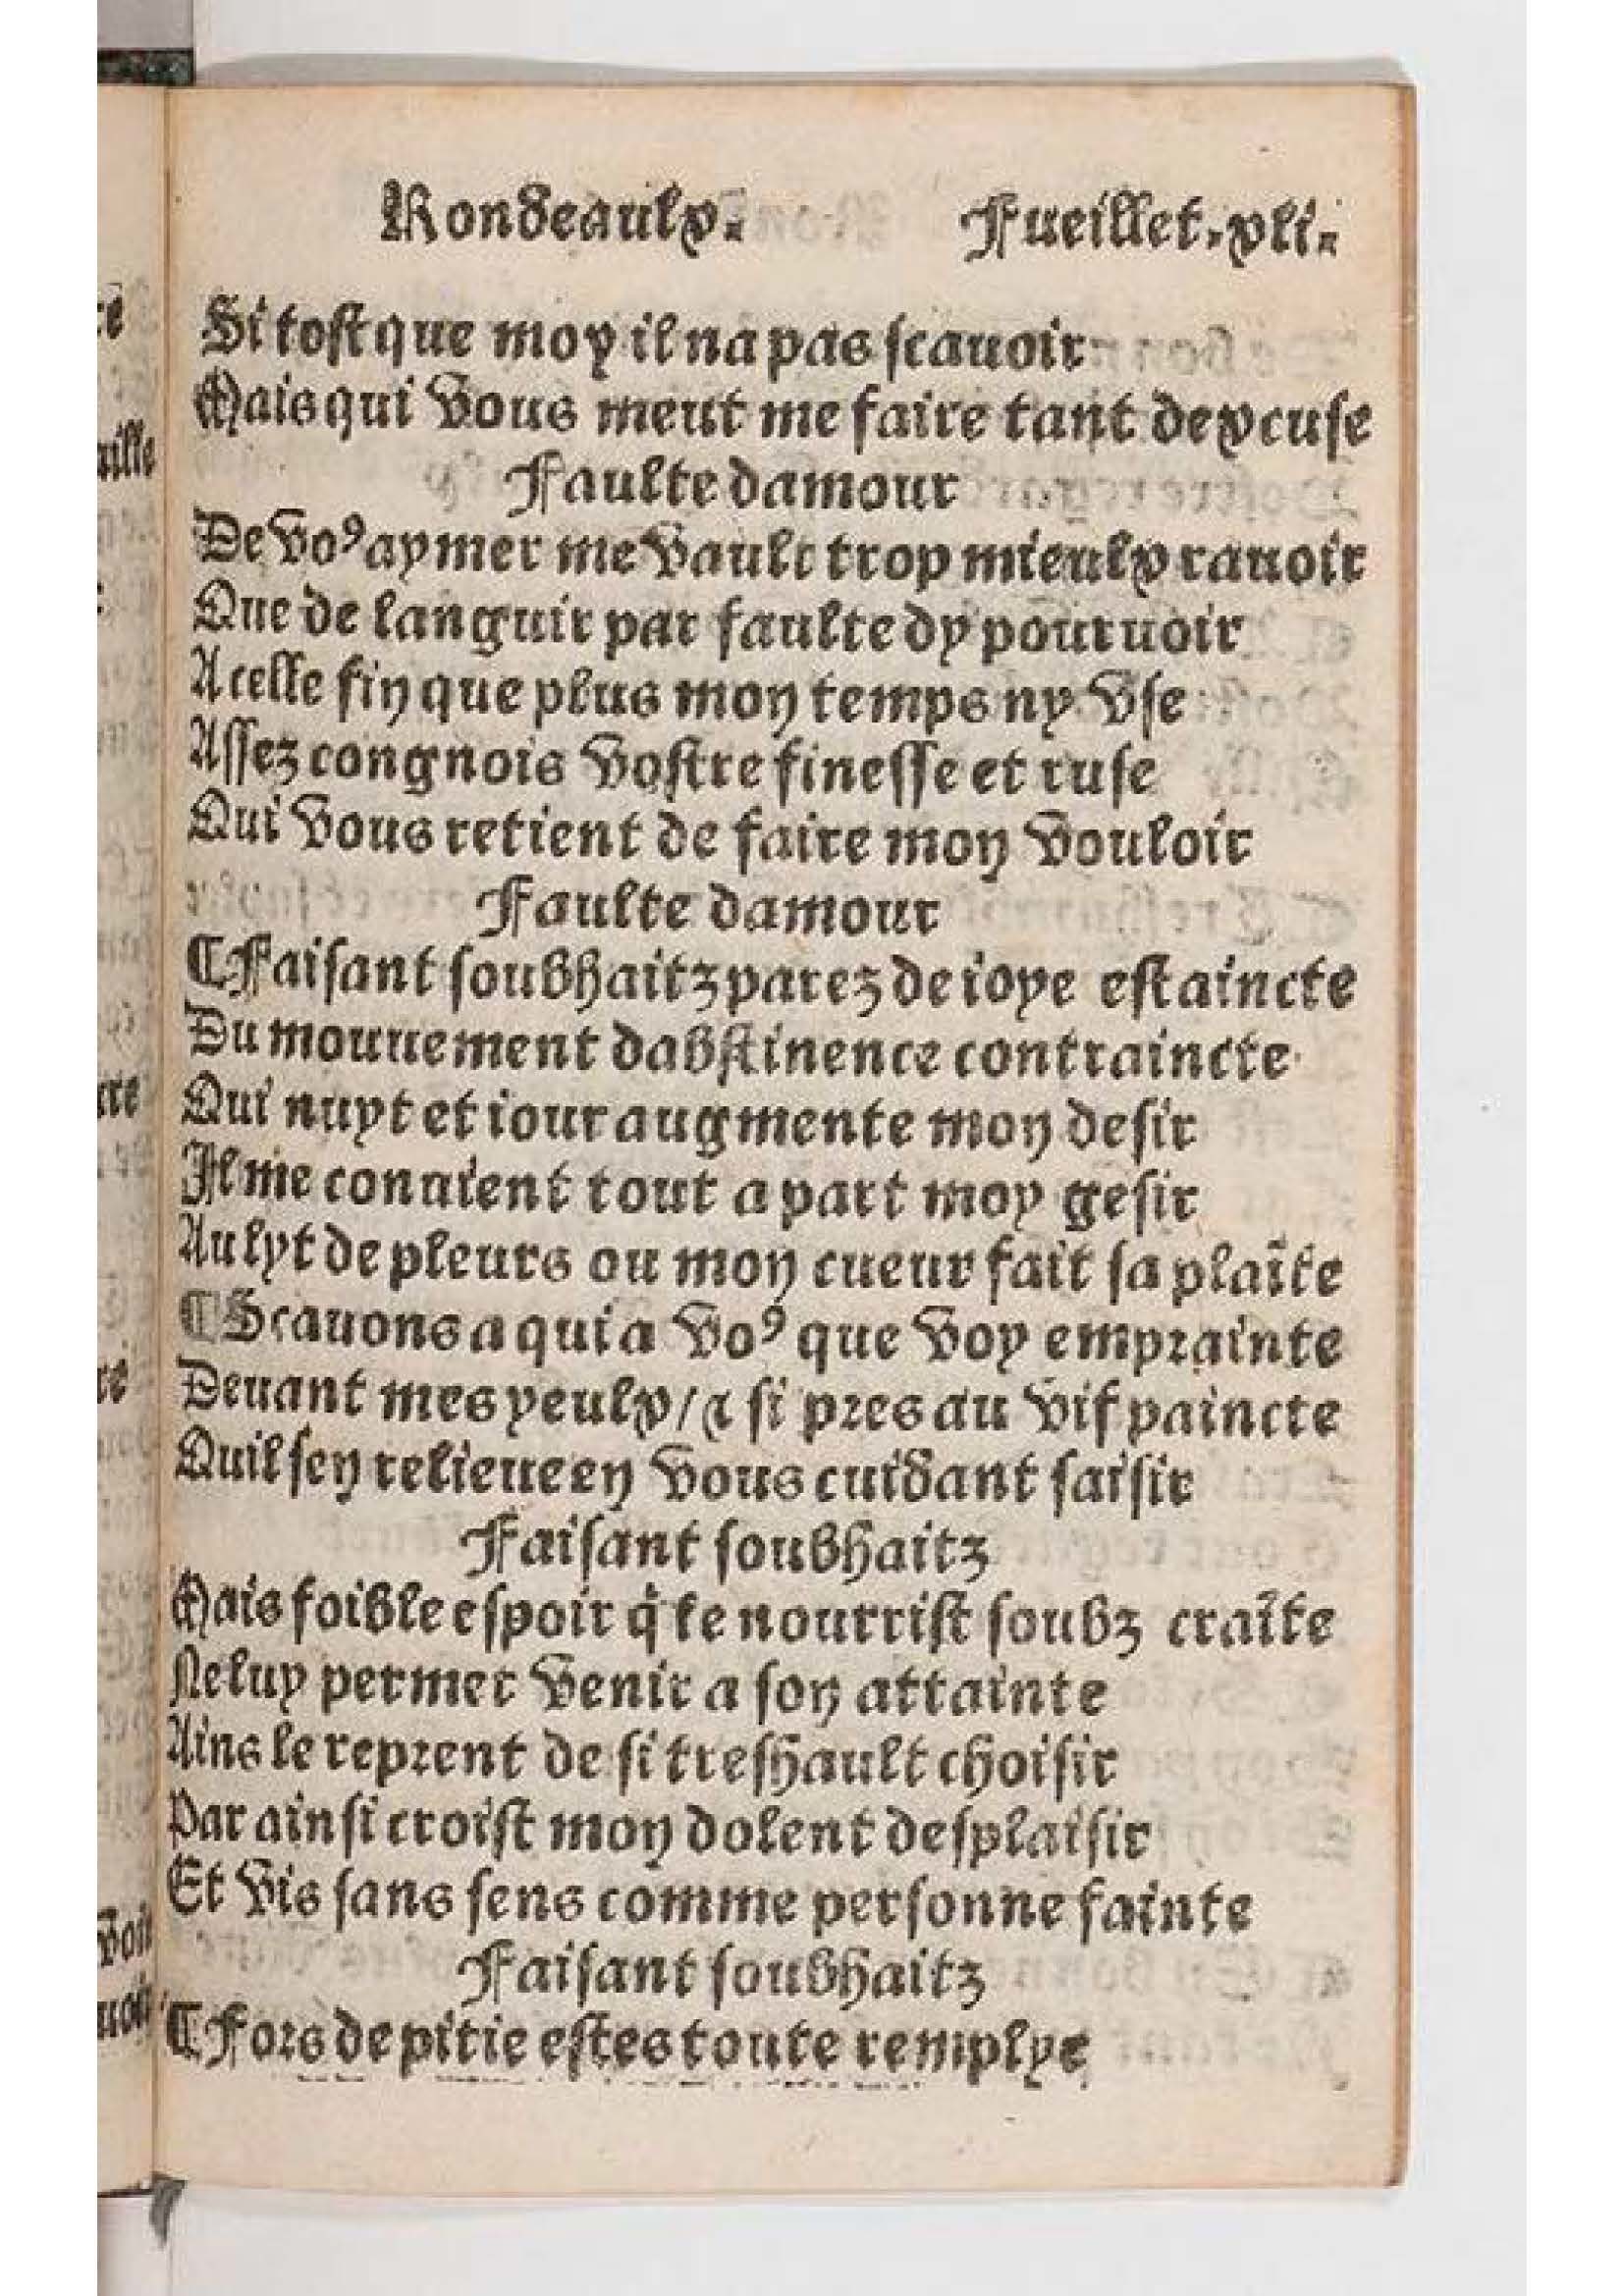 Rondeaulx. Fueillet.xli.
Si tost que moy il na pas scauoir
Mais qui vous meut me faire tant dexcuse
Faulte damour
De voꝰ aymer me vault trop mieulx rauoir
Que de languir par faulte dy pouruoir
A celle fin que plus mon temps ny vse
Assez congnois vostre finesse et ruse
Qui vous retient de faire mon vouloir
Faulte damour
¶Faisant soubhaitz parez de ioye estaincte
Du mouuement dabstinence contraincte
Qui nuyt et iour augmente mon desir
Il me conuient tout a part moy gesir
Au lyt de pleurs ou mon cueur fait sa plaīte
¶Scauons a qui a voꝰ que voy emprainte
Deuant mes yeulx/⁊ si pres au vif paincte
Quil sen relieue en vous cuidant saisir
Faisant soubhaitz
Mais foible espoir q̄ le nourrist soubz craīte
Ne luy permet venir a son attainte
Ains le reprent de si treshault choisir
Par ainsi croist mon dolent desplaisir
Et vis sans sens comme personne fainte
Faisant soubhaitz
¶Fors de pitie estes toute remplye